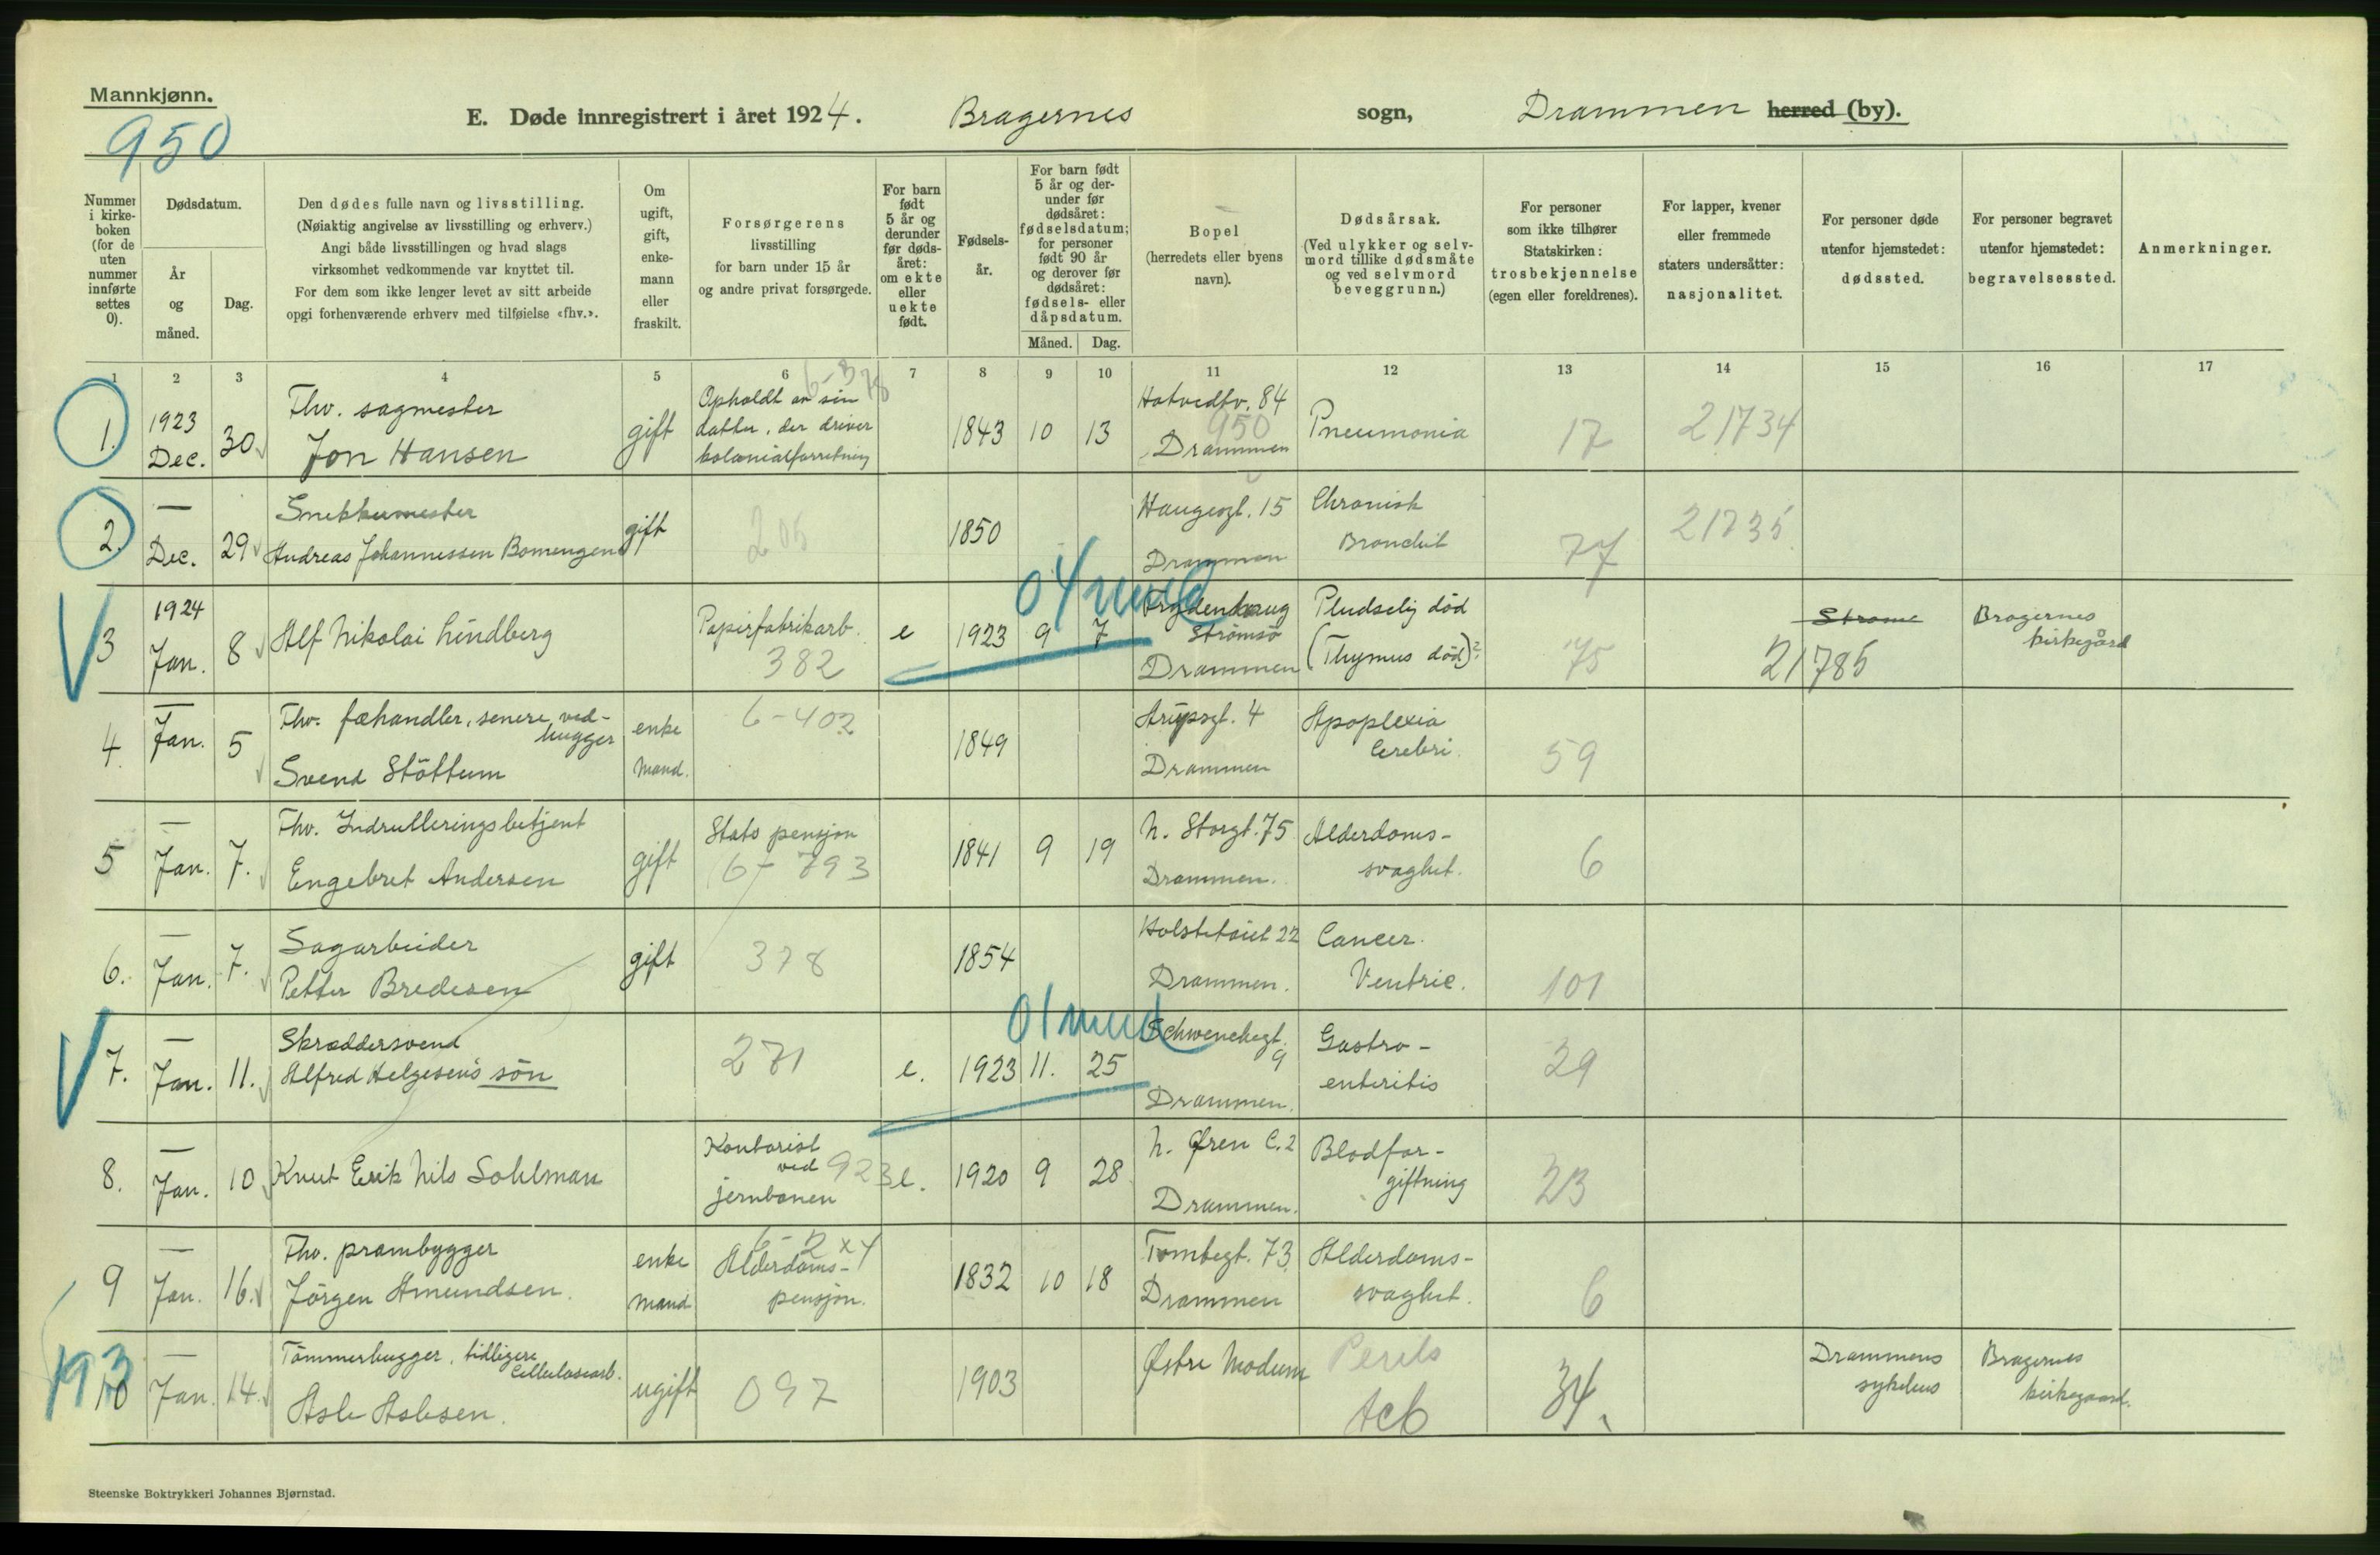 Mannkjønn.
950
E. Døde innregistrert i året 1924. Bragernes sogn, Drammen herred (by).
Nummer i kirke-boken (for de uten nummer innførte settes 0).
Dødsdatum.
År og måned.
Dag.
Den dødes fulle navn og livsstilling.
(Nøiaktig angivelse av livsstilling og erhverv.)
Angi både livsstillingen og hvad slags
virksomhet vedkommende var knyttet til.
For dem som ikke lenger levet av sitt arbeide
opgi forhenværende erhverv med tilføielse «fhv.».
Om ugift, gift, enke-mann eller fraskilt.
Forsørgerens
livsstilling
for barn under 15 år
og andre privat forsørgede.
For barn født 5 år og derunder før døds-året: om ekte eller uekte født.
Fødsels-år.
For barn født 5 år og der-under før dødsåret: fødselsdatum; for personer født 90 år og derover før dødsåret: fødsels- eller dåpsdatum.
Måned. Dag.
Bopel
(herredets eller byens
navn).
Dødsårsak.
(Ved ulykker og selv-
mord tillike dødsmåte
og ved selvmord
beveggrunn.)
For personer
som ikke tilhører
Statskirken:
trosbekjennelse
(egen eller foreldrenes).
For lapper, kvener
eller fremmede
staters undersåtter:
nasjonalitet.
For personer døde
utenfor hjemstedet:
dødssted.
For personer begravet
utenfor hjemstedet:
begravelsessted.
Anmerkninger.
1 2 3 4 5 6 7 8 9 10 11 12 13 14 15 16 17
1. 1923 Dec. 30
Fhv. sagmester
Jon Hansen
gift
Opholdt av sin
datter, der driver
kolonialforretning
1843 10 13
Hotvedtv. 84
950
Drammen
Pneumonia
17
21734
2. — Dec. 29
Snekkermester
Andreas Johannessen Bomengen
gift
205
1850
Haugesgt. 15
Drammen
Chronisk
Bronchit
77
21735
3 1924 Jan. 8
Alf Nikolai Lindberg
Papirfabrikarb.
382
e 1923 9 7
04 mnd
Strømsö
Drammen
Pludselig död
(Thymus död)?
75
21785
Strømsø
Bragernes
kirkegård
4. — Jan. 5
Fhv. fæhandler, senere ved-
hugger
Svend Stöttum
enke
mand.
6-402
1849
Arupsgt. 4
Drammen
Apoplexia
Cerebri.
59
5 — Jan. 7.
Fhv. Indrulleringsbetjent
Engebret Andersen
gift
Stats pensjon
6-793
1841 9 19
N. Storgt. 75
Drammen.
Alderdoms-
svaghet.
6
6. — Jan. 7.
Sagarbeider
Petter Bredesen
gift
378
1854
22
Drammen.
Cancer.
Ventric.
101
7. — Jan. 11.
Skræddersvend
Alfred Helgesens sön
271
e. 1923 11. 25
01 mnd
Schwenckegt.
9
Drammen.
Gastro-
enteritis
29
8. — Jan. 10
Knut Erik Nils Sohlman
Kontorist
ved
jernbanen
923
e. 1920 9 28
N. Øren C. 2
Drammen.
Blodfor-
giftning
23
9 — Jan. 16.
Fhv. prambygger
Jörgen Amundsen.
enke
mand
Alderdoms-
pensjon.
1832 10 18
Tomtegt. 73.
Drammen
Alderdoms-
svaghet.
6
193
10 — Jan. 14.
Tömmerhugger, tidligere
Cellulosearb.
Asle Aslesen.
ugift
097
1903
Østre Modum
34.
Drammens
sykehus
Bragernes
kirkegaard.
Steenske Boktrykkeri Johannes Bjørnstad.